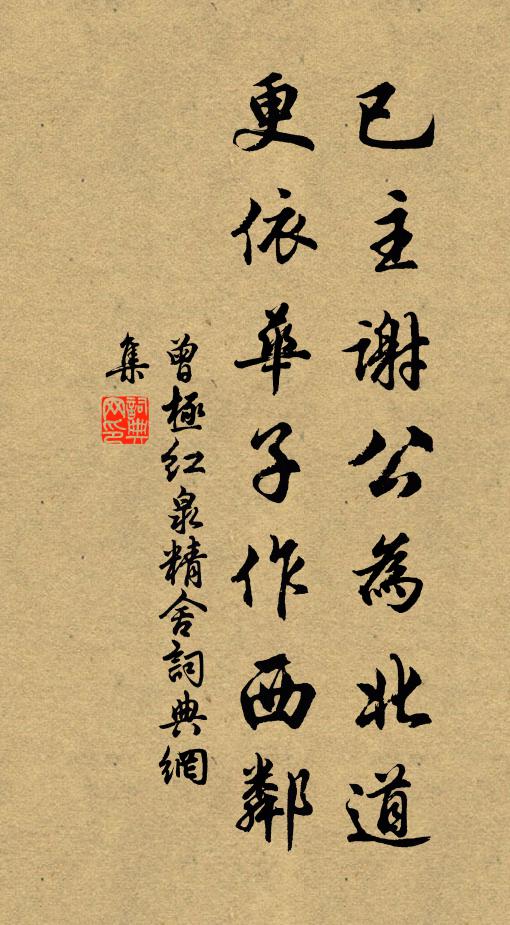 已主謝公為北道
更依華子作西鄰
曾極紅泉精舍詞典網
集
詞典
网印